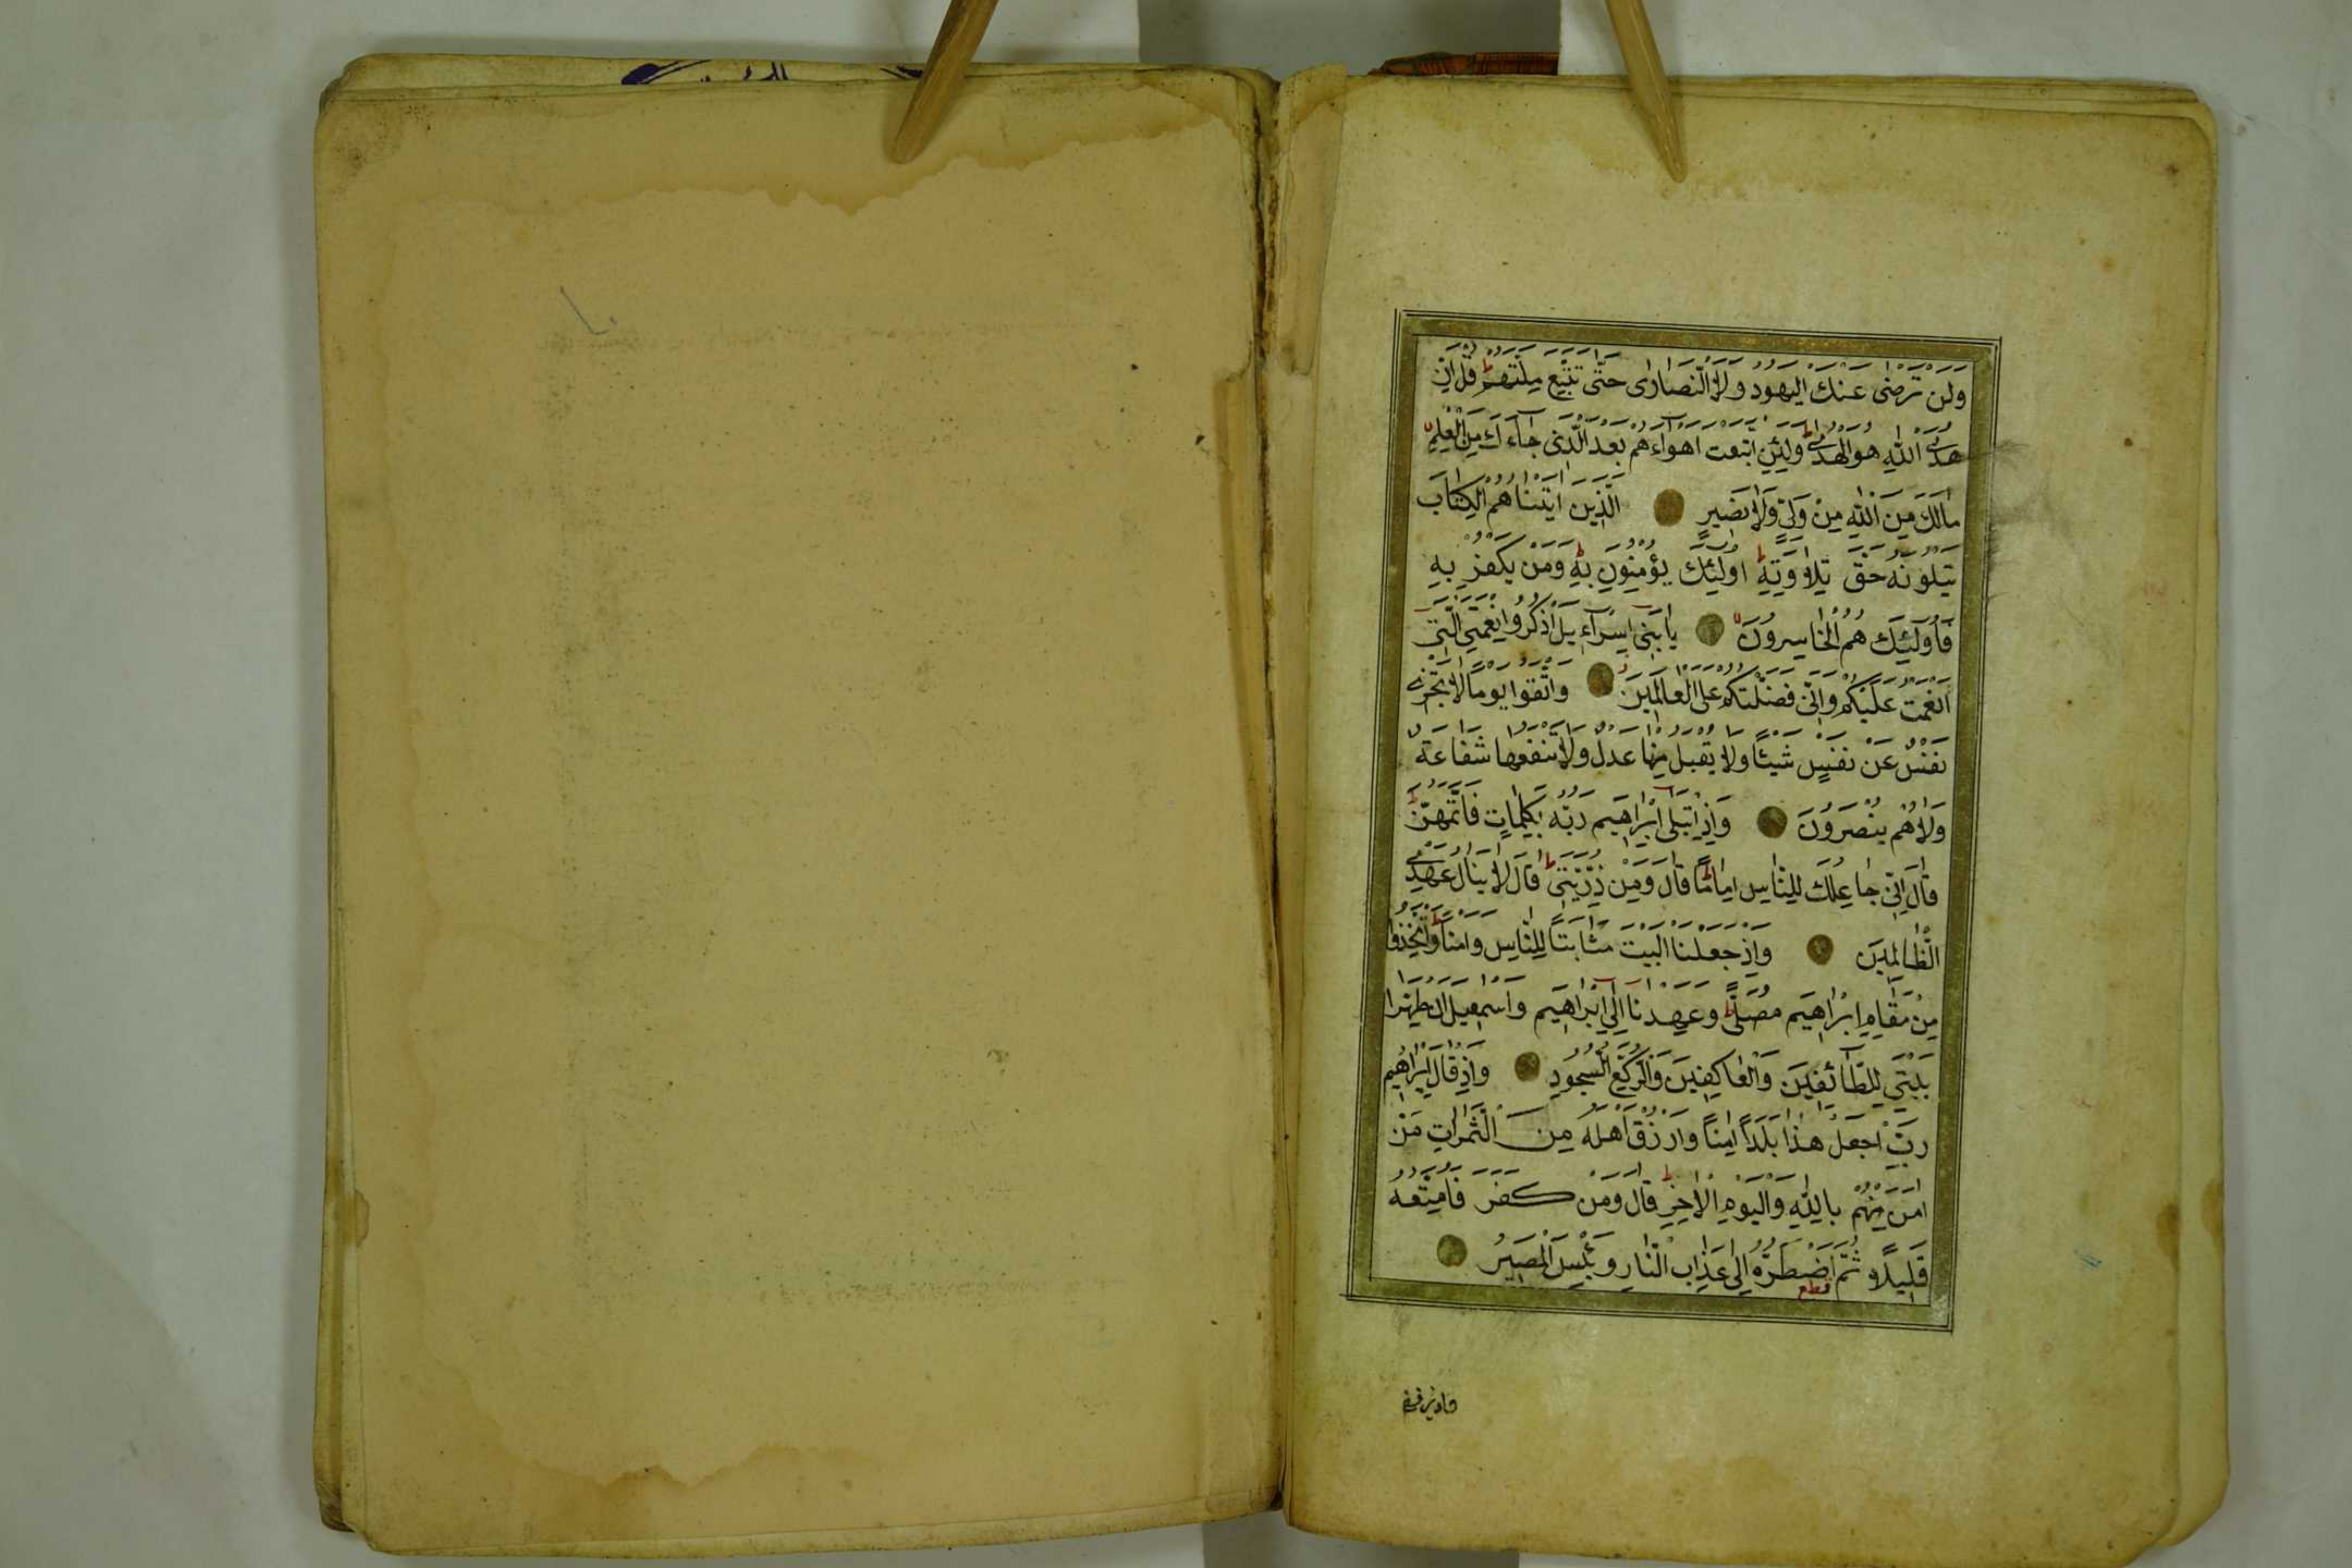 وَلَنْ تَرْضٰى عَنْكَ الْيَهُودُ وَلَا النَّصَارٰى حَتّٰى تَتَّبِعَ مِلَّتَهُمْ ط قُلْ اِنَّ
هُدَى اللّٰهِ هُوَ الْهُدٰى ط وَلَئِنِ اتَّبَعْتَ اَهْوَاۤءَهُمْ بَعْدَ الَّذِى جَاۤءَكَ مِنَ الْعِلْمِ
مَالَكَ مِنَ اللّٰهِ مِنْ وَلِىٍّ وَلَا نَصِيرٍ الَّذِينَ اٰتَيْنَاهُمُ الْكِتَابَ
يَتْلُونَهُ حَقَّ تِلَاوَتِهِ ط اُولٰۤئِكَ يُؤْمِنُونَ بِهِ ط وَمَنْ يَكْفُرْ بِهِ
فَاُولٰۤئِكَ هُمُ الْخَاسِرُونَ يَابَنِىۤ اِسْرَاۤءِيلَ اذْكُرُوا نِعْمَتِىَ الَّتِىۤ
اَنْعَمْتُ عَلَيْكُمْ وَاَنِّى فَضَّلْتُكُمْ عَلَى الْعَالَمِينَ وَاتَّقُوا يَوْمًا لَا تَجْزِى
نَفْسٌ عَنْ نَفْسٍ شَيْئًا وَلَا يُقْبَلُ مِنْهَا عَدْلٌ وَلَا تَنْفَعُهَا شَفَاعَةٌ
وَلَا هُمْ يُنْصَرُونَ وَاِذِ ابْتَلٰىۤ اِبْرَاهِيمَ رَبُّهُ بِكَلِمَاتٍ فَاَتَمَّهُنَّ ط
قَالَ اِنِّى جَاعِلُكَ لِلنَّاسِ اِمَامًا ط قَالَ وَمِنْ ذُرِّيَّتِى ط قَالَ لَا يَنَالُ عَهْدِى
الظَّالِمِينَ وَاِذْ جَعَلْنَا الْبَيْتَ مَثَابَتًا لِلنَّاسِ وَاَمْنًا ط وَاتَّخِذُوا
مِنْ مَقَامِ اِبْرَاهِيمَ مُصَلًّى ط وَعَهِدْنَاۤ اِلٰىۤ اِبْرَاهِيمَ وَاِسْمٰعِيلَ اَنْ طَهِّرَا
بَيْتِىَ لِلطَّاۤئِفِينَ وَالْعَاكِفِينَ وَالرُّكَّعِ السُّجُودِ وَاِذْ قَالَ اِبْرَاهِيمُ
رَبِّ اجْعَلْ هٰذَا بَلَدًا اٰمِنًا وَارْزُقْ اَهْلَهُ مِنَ الثَّمَرَاتِ مَنْ
اٰمَنَ مِنْهُمْ بِاللّٰهِ وَالْيَوْمِ الْاٰخِرِ ط قَالَ وَمَنْ كَفَرَ فَاُمَتِّعُهُ
قَلِيلًا ثُمَّ اَضْطَرُّهُ اِلٰى عَذَابِ النَّارِ وَبِئْسَ الْمَصِيرُ
واذ يرفع